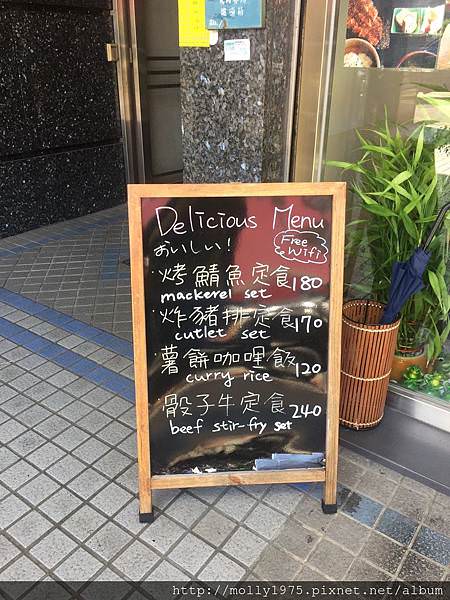 Delicious Menu
おいしい!
Free
WiFi
·烤鯖魚定食180
mackerel set
·炸豬排定食170
cutlet set
·薯餅咖哩飯120
curry rice
·骰子牛定食240
beef stir-fry set
http://molly1975.pixnet.net/album